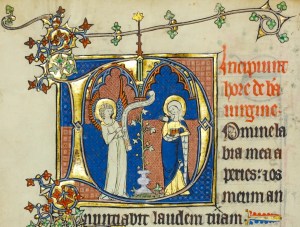 Incipiunt
hore de bā
uirgine
DOmine la
bia mea a
peries: ⁊ os
meum an
nuntiabit laudem tuam.